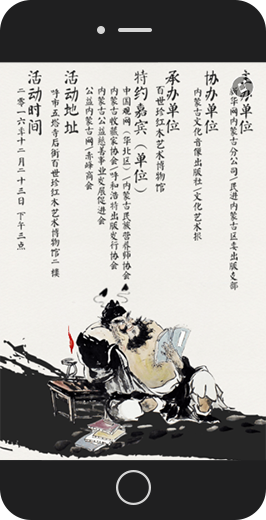 主办单位
新华网内蒙古分公司/民进内蒙古区委出版支部
协办单位
内蒙古文化音像出版社/文化艺术报
承办单位
百世珍红木艺术博物馆
特约嘉宾(单位)
中国观网(华北区)/内蒙古民族营养师协会
内蒙古收藏家协会/呼和浩特出版发行协会
内蒙古公益慈善事业发展促进会
公益内蒙古网/赤峰商会
活动地址
呼市五塔寺后街百世珍红木艺术博物馆二楼
活动时间
二零一六年十二月二十三日 下午三点